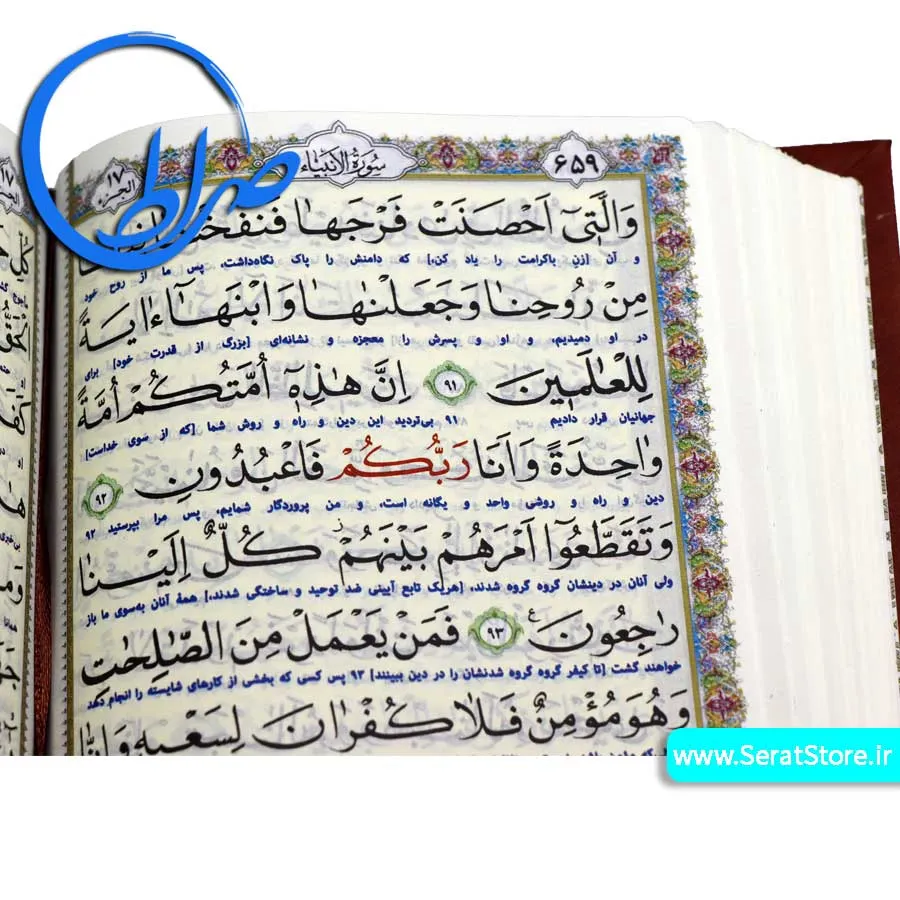 صراط
الجزء ١٧
سورة الانبياء
۶۵۹
وَالَّتىٓ اَحْصَنَتْ فَرْجَهٰا فَنَفَخْنٰا
و آن [زنِ باکرامت را یاد کن،] که دامنش را پاک نگاه‌داشت، پس ما از روح خود
مِنْ رُوحِنٰا وَجَعَلْنٰهٰا وَابْنَهٰآ ءٰايَةً
در او دمیدیم، و او و پسرش را [معجزه و نشانه‌ای [بزرگ از قدرت خود] برای
لِلْعٰالَمينَ ۹۱ اِنَّ هٰذِهٖٓ اُمَّتُكُمْ اُمَّةً
جهانیان قرار دادیم ۹۱ بی‌تردید این دین و راه و روش شما [که از سوی خداست]
وٰاحِدَةً وَاَنَا رَبُّكُمْ فَاعْبُدُونِ ۹۲
دین و راه و روشی واحد و یگانه است، و من پروردگار شمایم، پس مرا بپرستید ۹۲
وَتَقَطَّعُوٓا اَمْرَهُمْ بَيْنَهُمْ كُلٌّ اِلَيْنٰا
ولی آنان در دینشان گروه گروه شدند، [هریک تابع آیینی ضد توحید و ساختگی شدند،] همهٔ آنان به‌سوی ما باز
رٰاجِعُونَ ۹۳ فَمَنْ يَعْمَلْ مِنَ الصّٰلِحٰتِ
خواهند گشت [تا کیفر گروه گروه شدنشان را در دین ببینند] ۹۳ پس کسی که بخشی از کارهای شایسته را انجام دهد
وَهُوَ مُؤْمِنٌ فَلٰا كُفْرٰانَ لِسَعْيِهٖ وَاِنّٰا
www.SeratStore.ir